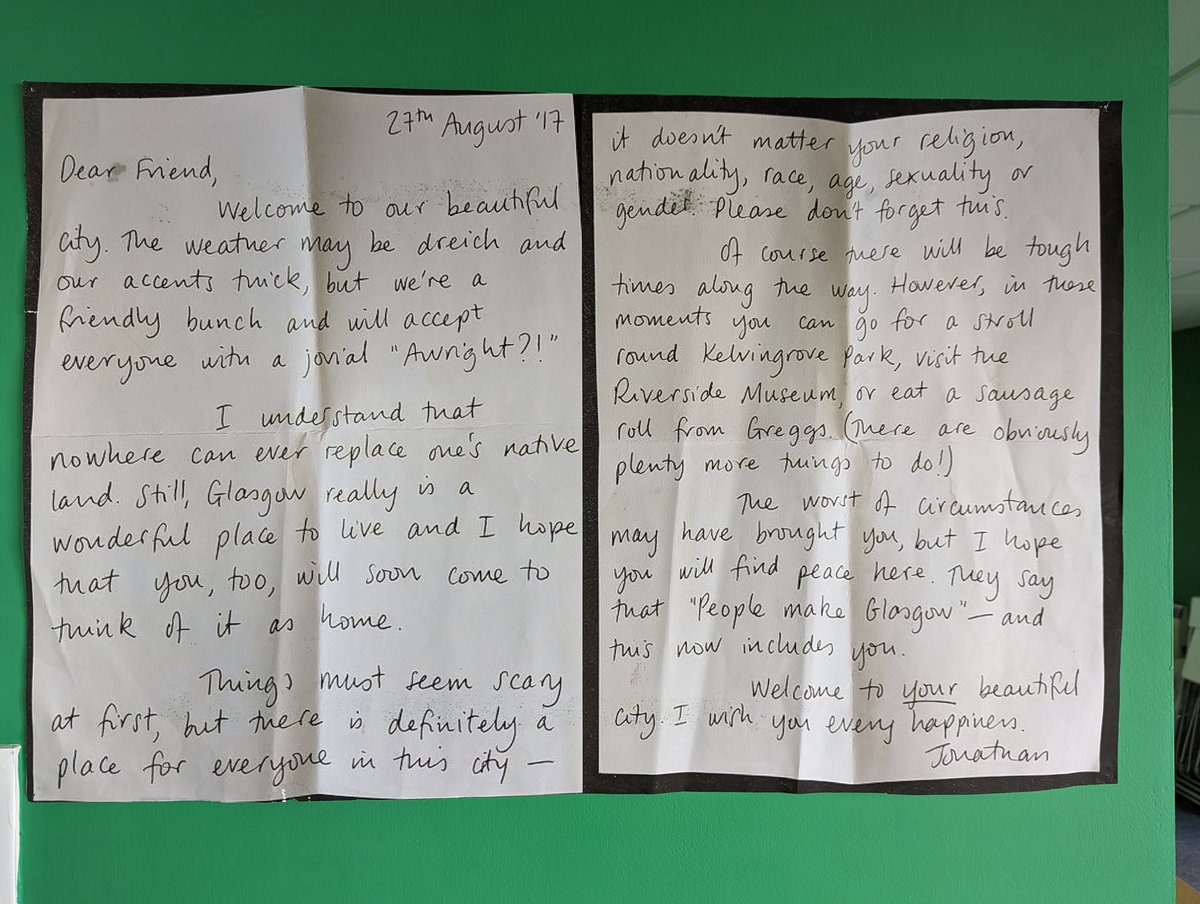 27th August '17
Dear Friend,
Welcome to our beautiful
city. The weather may be dreich and
our accents thick, but we're a
friendly bunch and will accept
everyone with a jovial "Awright?!"
I understand that
nowhere can ever replace one's native
land. Still, Glasgow really is a
wonderful place to live and I hope
that you, too, will soon come to
think of it as home.
Things must seem scary
at first, but there is definitely a
place for everyone in this city —
it doesn't matter your religion,
nationality, race, age, sexuality or
gender. Please don't forget this.
Of course there will be tough
times along the way. However, in these
moments you can go for a stroll
round Kelvingrove Park, visit the
Riverside Museum, or eat a sausage
roll from Greggs. (There are obviously
plenty more things to do!)
The worst of circumstances
may have brought you, but I hope
you will find peace here. They say
that "People make Glasgow" — and
this now includes you.
Welcome to your beautiful
city. I wish you every happiness.
Jonathan